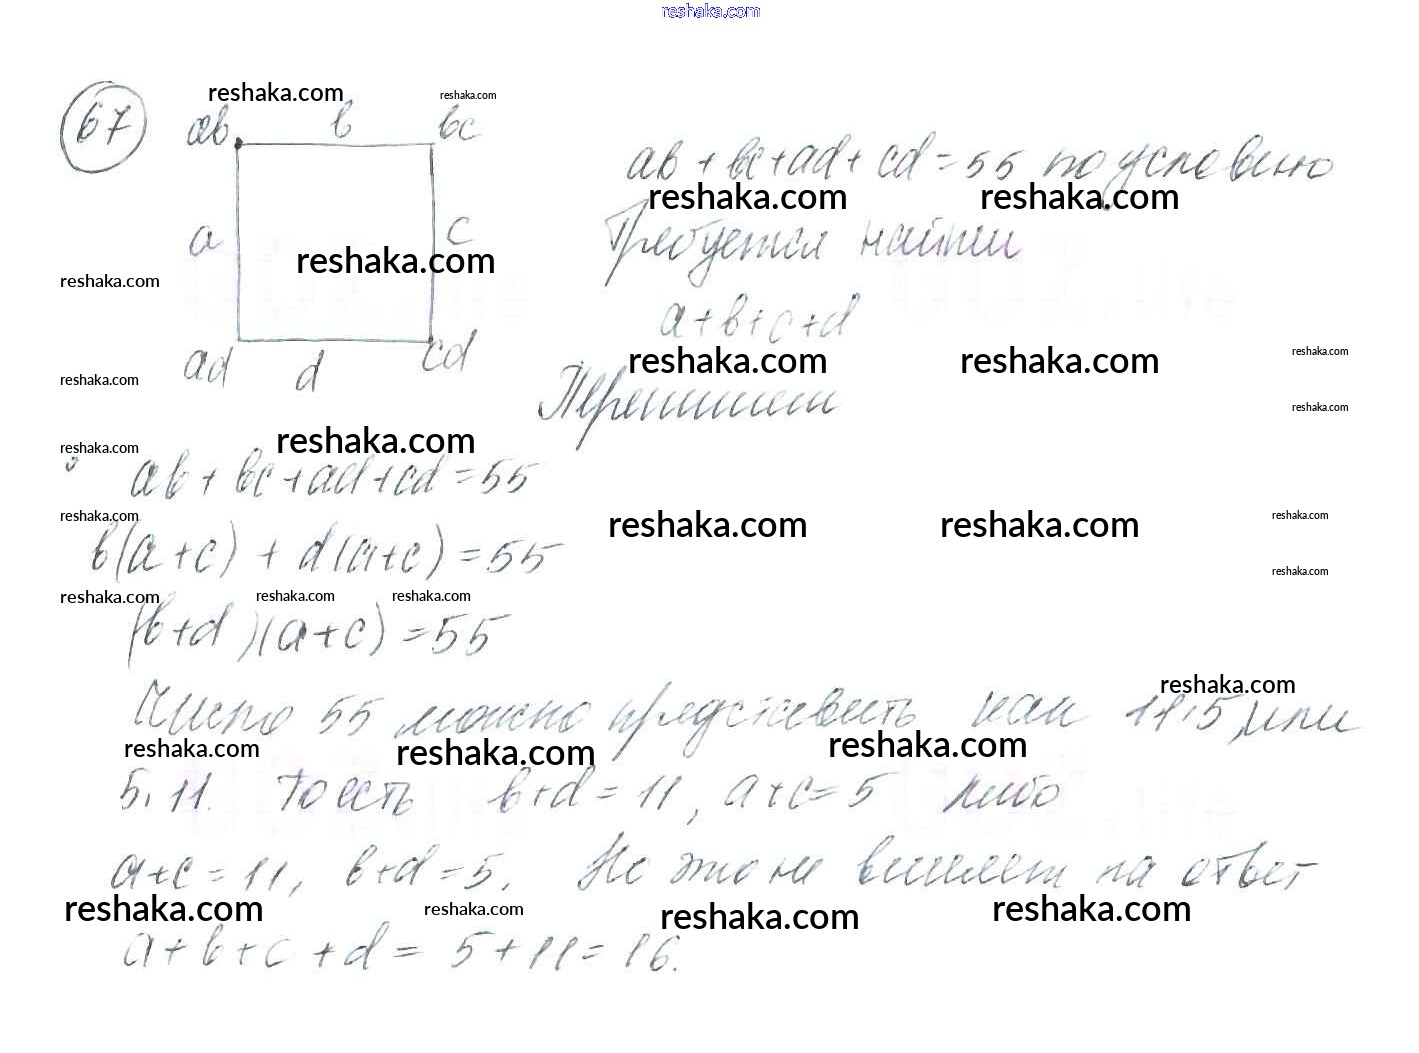 reshaka.com
67
reshaka.com reshaka.com
ab b bc
ab + bc + ad + cd = 55 по условию
reshaka.com reshaka.com
a c
Требуется найти
reshaka.com
reshaka.com
a + b + c + d
ad d cd
reshaka.com reshaka.com reshaka.com
reshaka.com
Перепишем
reshaka.com
reshaka.com
reshaka.com
ab + bc + ad + cd = 55
reshaka.com reshaka.com reshaka.com reshaka.com
b(a + c) + d(a + c) = 55
reshaka.com
reshaka.com reshaka.com reshaka.com
(b + d)(a + c) = 55
reshaka.com
Число 55 можно представить как 11·5 или
reshaka.com reshaka.com reshaka.com
5·11. То есть b + d = 11, a + c = 5 либо
a + c = 11, b + d = 5. Но это не влияет на ответ
reshaka.com reshaka.com reshaka.com reshaka.com
a + b + c + d = 5 + 11 = 16.